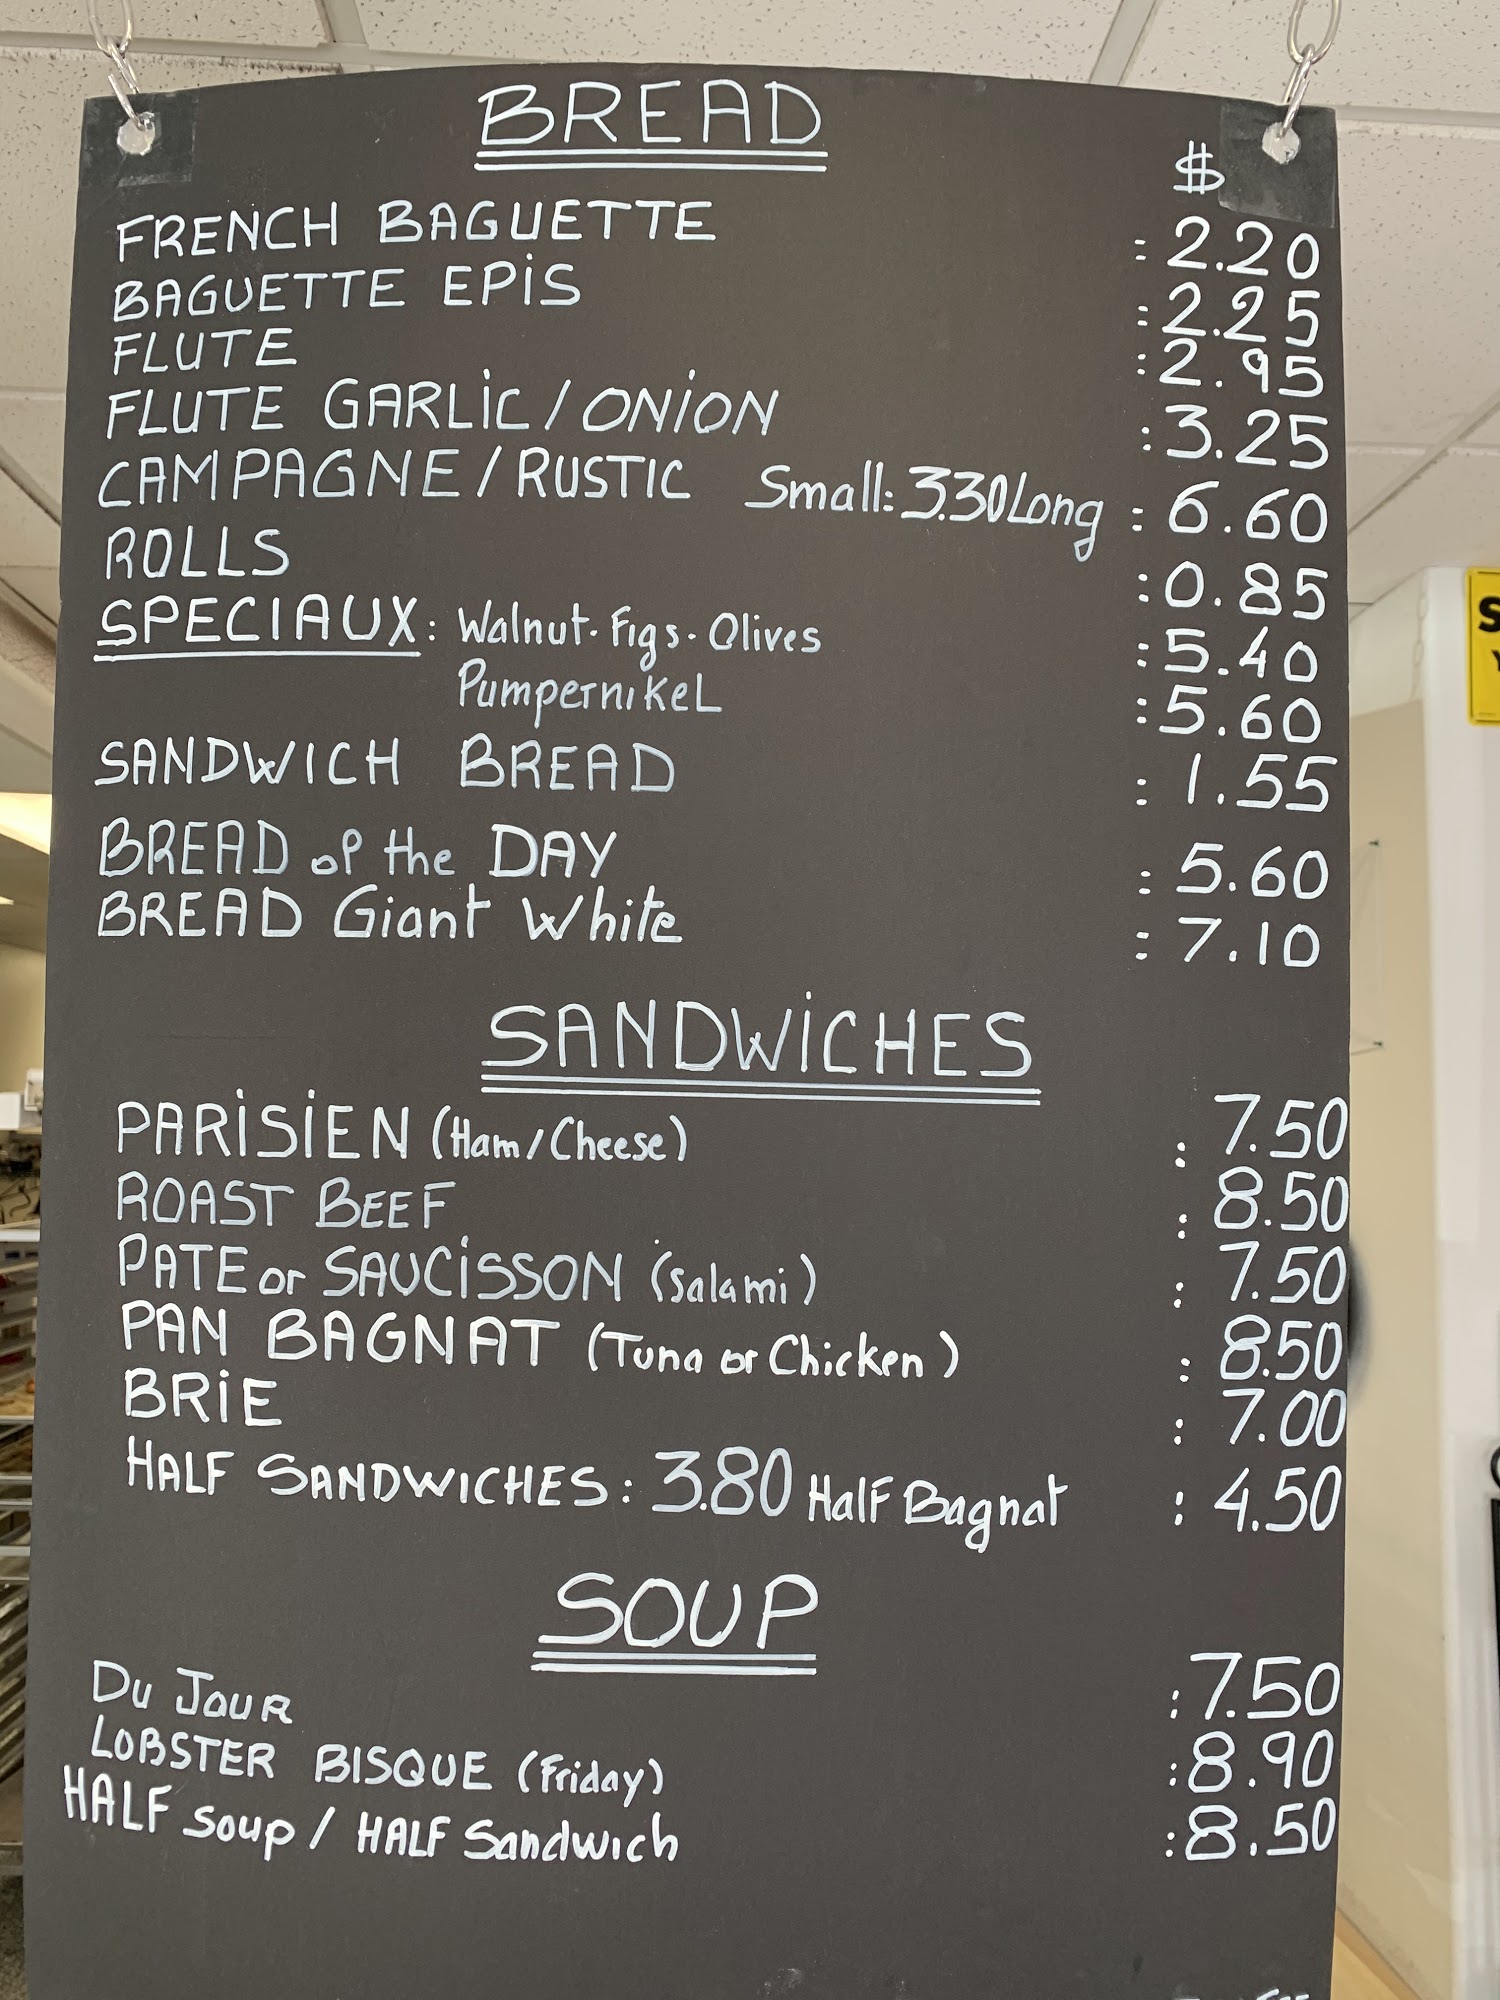 BREAD
$
FRENCH BAGUETTE : 2.20
BAGUETTE EPiS : 2.25
FLUTE : 2.95
FLUTE GARLiC / ONiON : 3.25
CAMPAGNE / RUSTIC Small: 3.30 Long : 6.60
ROLLS : 0.85
SPECIAUX : Walnut - Figs - Olives : 5.40
PumperniKeL : 5.60
SANDWICH BREAD : 1.55
BREAD of the DAY : 5.60
BREAD Giant White : 7.10
SANDWiCHES
PARiSiEN (Ham / Cheese) : 7.50
ROAST BEEF : 8.50
PATE or SAUCiSSON (Salami) : 7.50
PAN BAGNAT (Tuna or Chicken) : 8.50
BRiE : 7.00
HALF SANDWICHES : 3.80 HalF Bagnat : 4.50
SOUP
Du JOUR : 7.50
LOBSTER BISQUE (Friday) : 8.90
HALF Soup / HALF Sandwich : 8.50